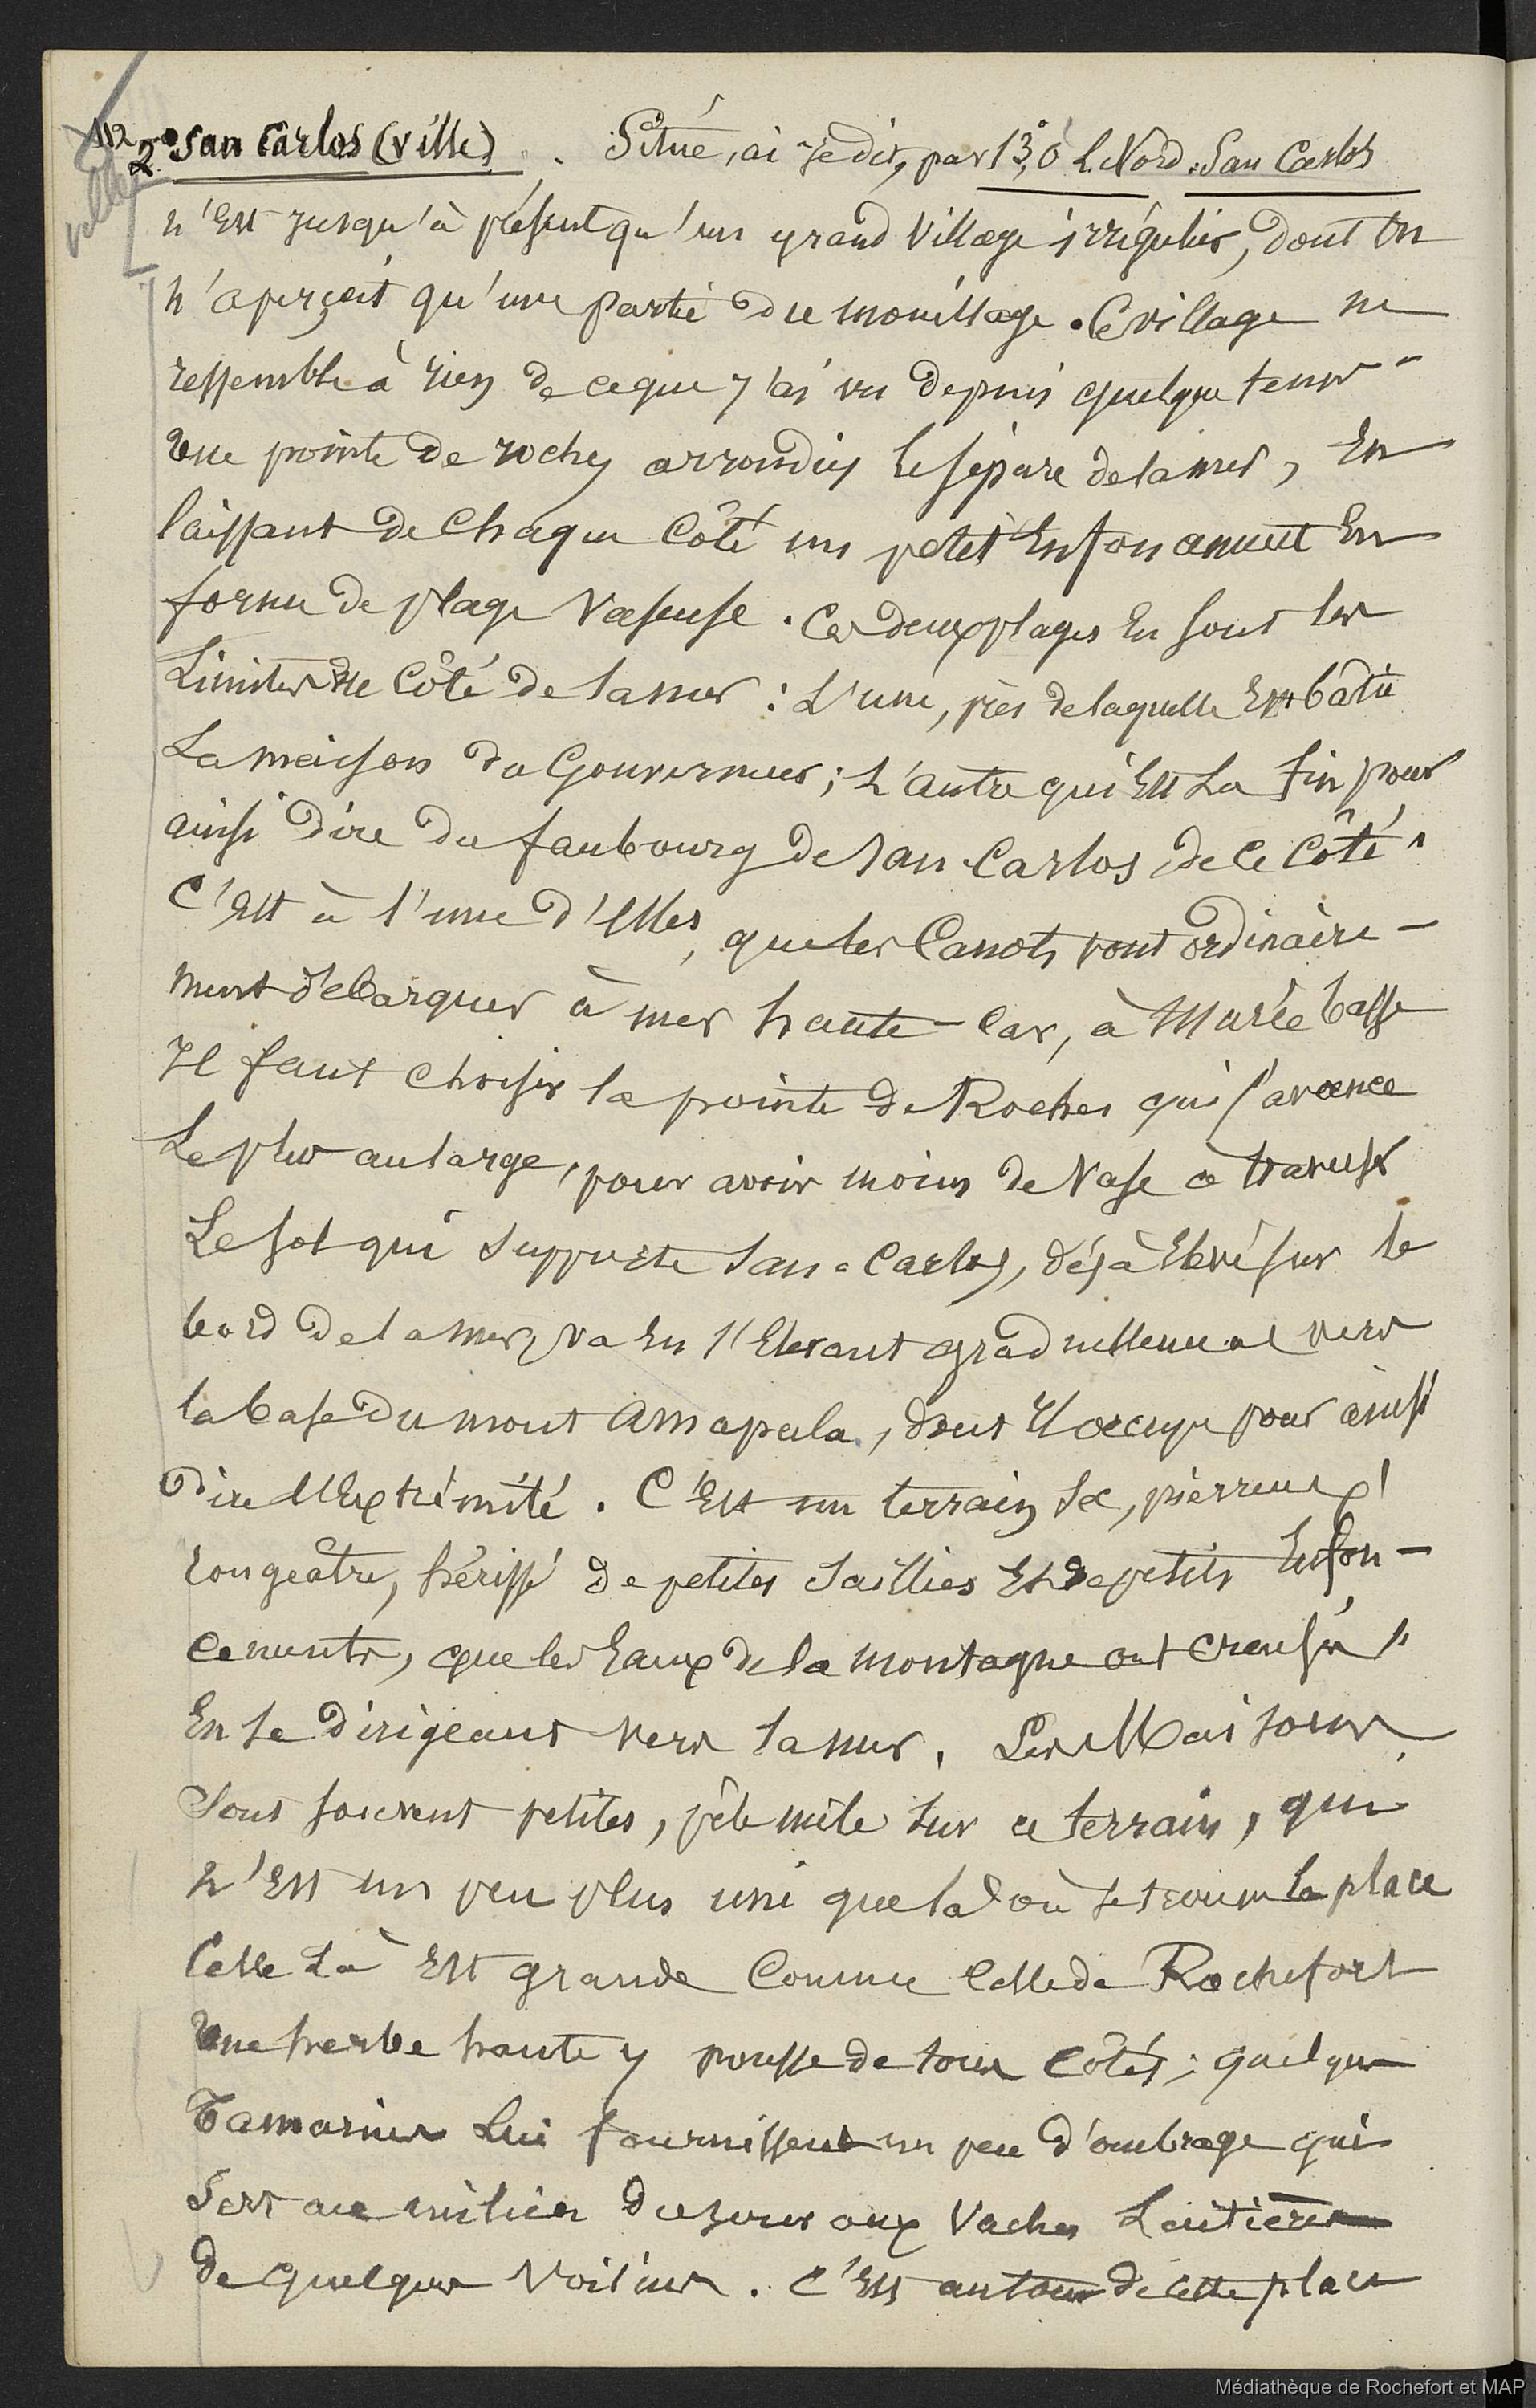 112
2° San Carlos (ville). Situé, ai-je dit, par 13°,0' L. Nord. San Carlos
ville
n'est jusqu'à présent qu'un grand Village irrégulier, dont on
n'aperçoit qu'une partie du mouillage. Ce village ne
ressemble à rien de ce que j'ai vu depuis quelque tems
Une pointe de roches arrondies le sépare de la mer, en
laissant de chaque côté un petit enfoncement en
forme de plage vaseuse. Ces deux plages en sont les
Limites de côté de la mer : L'une, près de laquelle est bâtie
La maison du Gouverneur; L'autre qui est La fin pour
ainsi dire du faubourg de San-Carlos de ce côté.
C'est à l'une d'elles, que les Canots vont ordinaire-
ment débarquer à mer haute car, à marée basse
Il faut choisir la pointe de Roches qui s'avance
Le plus au large, pour avoir moins de Vase à traverser
Le sol qui supporte San-Carlos, déjà élevé sur le
bord de la mer, va en s'élevant graduellement vers
la base du mont Amapala, dont il occupe pour ainsi
dire l'Extrémité. C'est un terrain sec, pierreux,
rougeâtre, hérissé de petites saillies et de petits enfon-
cements, que les Eaux de la montagne ont creusés
En se dirigeant vers la mer. Les Maisons
sont souvent petites, pêle mêle sur ce terrain, qui
n'est un peu plus uni que là où se trouve la place
Celle Là est grande Comme Celle de Rochefort
Une herbe haute y pousse de tous côtés; quelques
Tamarins Lui fournissent un peu d'ombrage qui
sert au milieu du jour aux Vaches Laitières
de quelques Voisins. C'est autour de cette place
Médiathèque de Rochefort et MAP